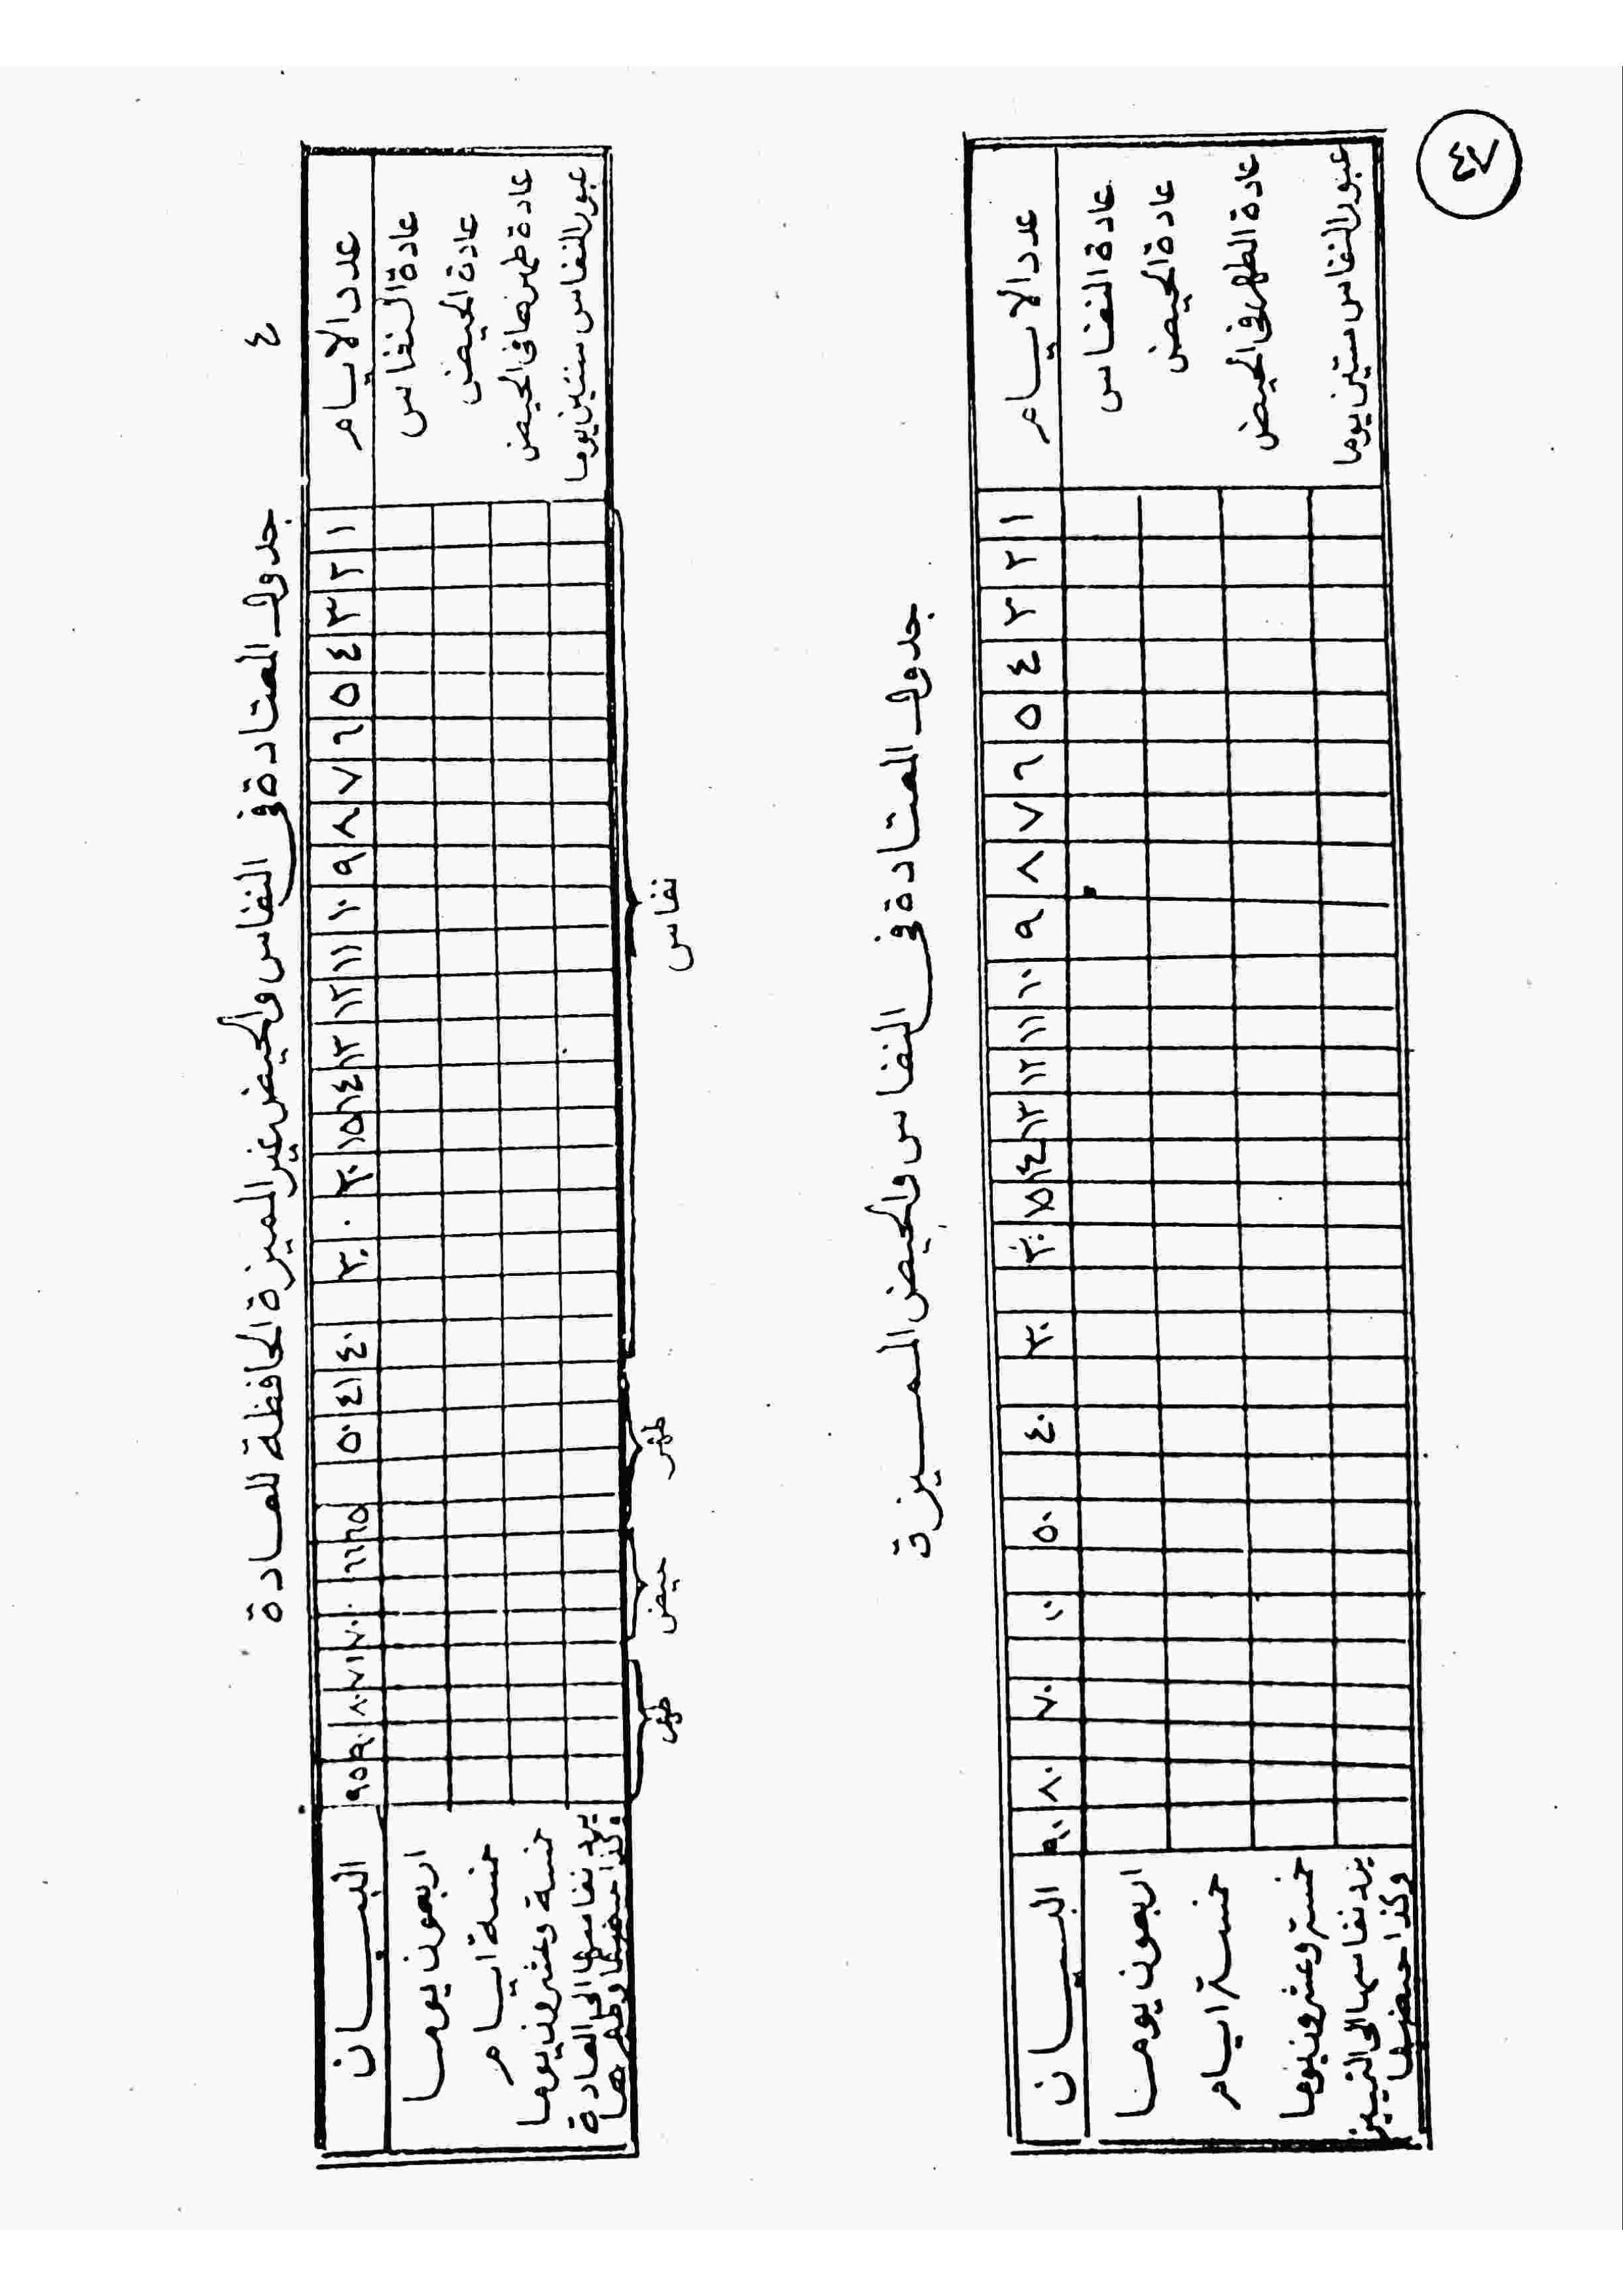 ٤٣
٤
جدول المعتادة في النفاس والحيض غير المميزة الحافظة للعادة
عدد الايام ١ ٢ ٣ ٤ ٥ ٦ ٧ ٨ ٩ ١٠ ١١ ١٢ ١٣ ١٤ ١٥ ٢٠ ٣٠ ٤٠ ٤١ ٥٠ ٦٥ ٦٦ ٧٠ ٧١ ٨٠ ٩٠ ٩٥ البيان
عادة النفاس اربعون يوما
عادة الحيض خمسة ايام
عادة طهرها في الحيض خمسة وعشرون يوما
عبور النفاس ستين يوما يرد نفاسها الى العادة
وكذا حيضها وطهرها
نفاس طهر حيض طهر
جدول المعتادة في النفاس والحيض المميزة
عدد الايام ١ ٢ ٣ ٤ ٥ ٦ ٧ ٨ ٩ ١٠ ١١ ١٢ ١٣ ١٤ ١٥ ٢٠ ٣٠ ٤٠ ٥٠ ٦٠ ٧٠ ٨٠ ٩٠ البيان
عادة النفاس اربعون يوما
عادة الحيض خمسة ايام
عادة الطهر في الحيض خمسة وعشرون يوما
عبور النفاس ستين يوما يرد نفاسها الى التمييز
وكذا حيضها